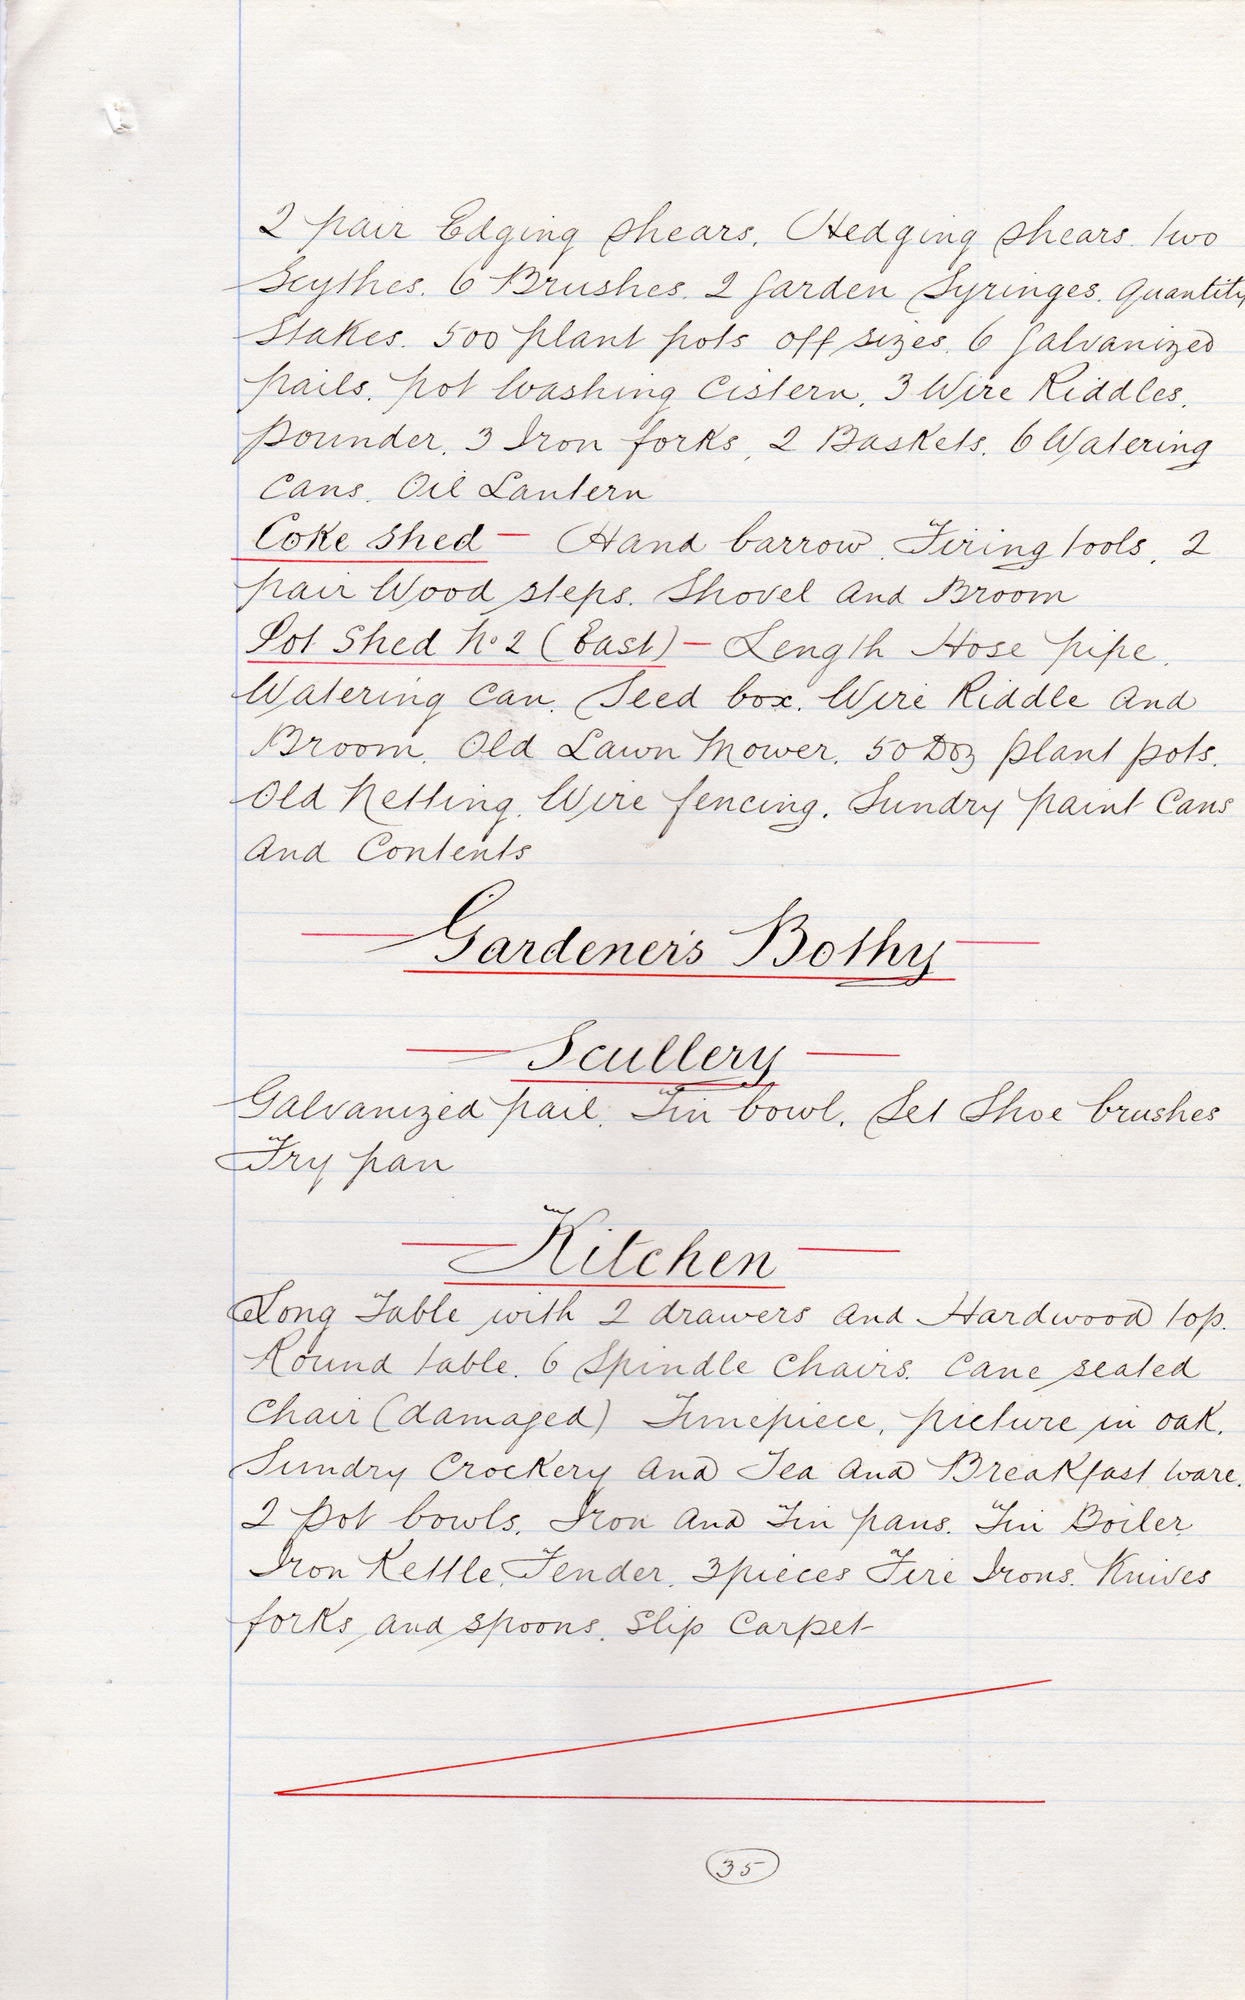 2 pair Edging shears. Hedging shears. two
Scythes. 6 Brushes. 2 Garden Syringes. Quantity
Stakes. 500 plant pots off sizes. 6 Galvanized
pails. pot washing Cistern. 3 Wire Riddles.
Pounder. 3 Iron forks, 2 Baskets. 6 Watering
Cans. Oil Lantern
Coke Shed — Hand barrow. Firing tools. 2
pair Wood steps. Shovel and Broom
Pot Shed No 2 (East) — Length Hose pipe.
Watering Can. Seed box. Wire Riddle and
Broom. Old Lawn Mower. 50 Doz plant pots.
Old Netting. Wire fencing. Sundry paint Cans
and Contents
— Gardener's Bothy —
— Scullery —
Galvanized pail. Tin bowl. Set Shoe brushes
Fry pan
— Kitchen —
Long Table with 2 drawers and Hardwood top.
Round table. 6 Spindle Chairs. Cane seated
Chair (damaged) Timepiece, picture in oak.
Sundry Crockery and Tea and Breakfast ware.
2 Pot bowls. Iron and Tin pans. Tin Boiler
Iron Kettle. Fender. 3 pieces Fire Irons. Knives
forks and spoons. Slip Carpet
35